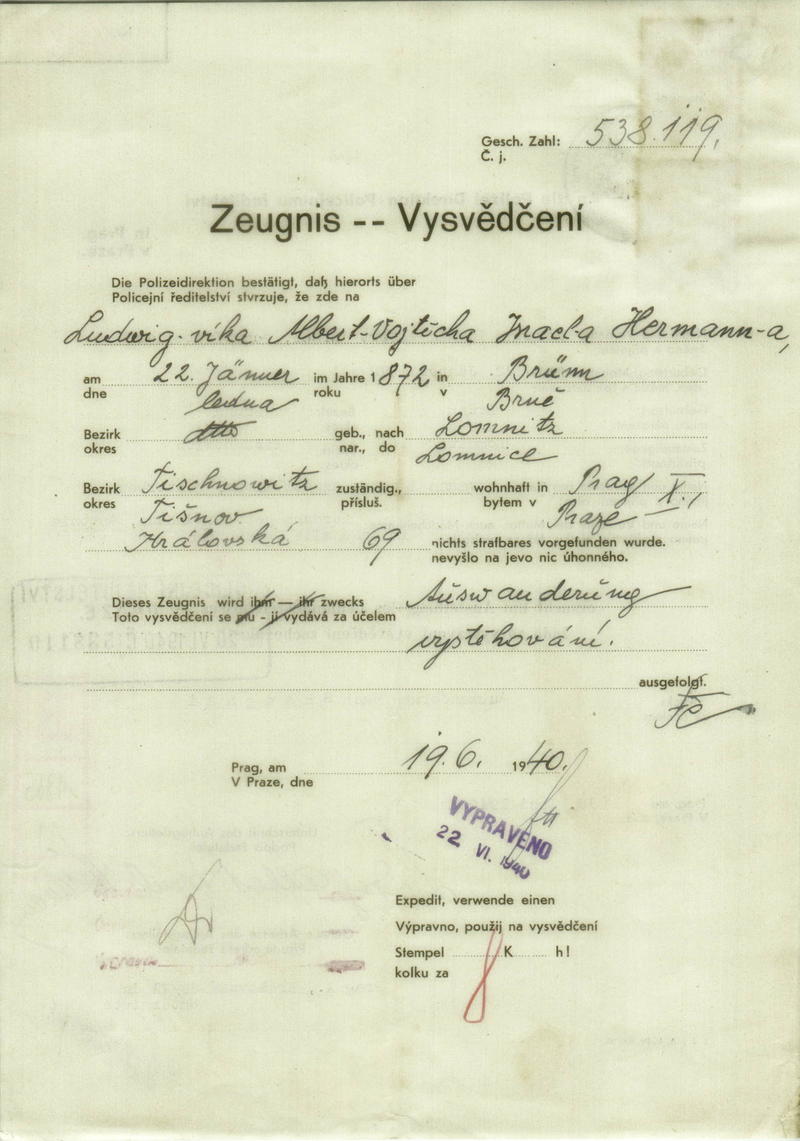 Gesch. Zahl: 538.119.
Č. j.
Zeugnis -- Vysvědčení
Die Polizeidirektion bestätigt, daß hierorts über
Policejní ředitelství stvrzuje, že zde na
Ludwig-víka Albert-Vojtěcha Hermann-a,
am 22. Jänner im Jahre 1872 in Brünn
dne ledna roku v Brně
Bezirk dtto geb., nach Lomnitz
okres nar., do Lomnice
Bezirk Tischnowitz zuständig., wohnhaft in Prag X.,
okres Tišnov přísluš. bytem v Praze
Královská 69 nichts strafbares vorgefunden wurde.
nevyšlo na jevo nic úhonného.
Dieses Zeugnis wird ihm — ihr zwecks Auswanderung
Toto vysvědčení se mu - jí vydává za účelem
vystěhování.
ausgefolgt.
Prag, am 19.6. 1940.
V Praze, dne
VYPRAVENO
22 VI. 1940
Expedit, verwende einen
Výpravno, použij na vysvědčení
Stempel K h!
kolku za 8